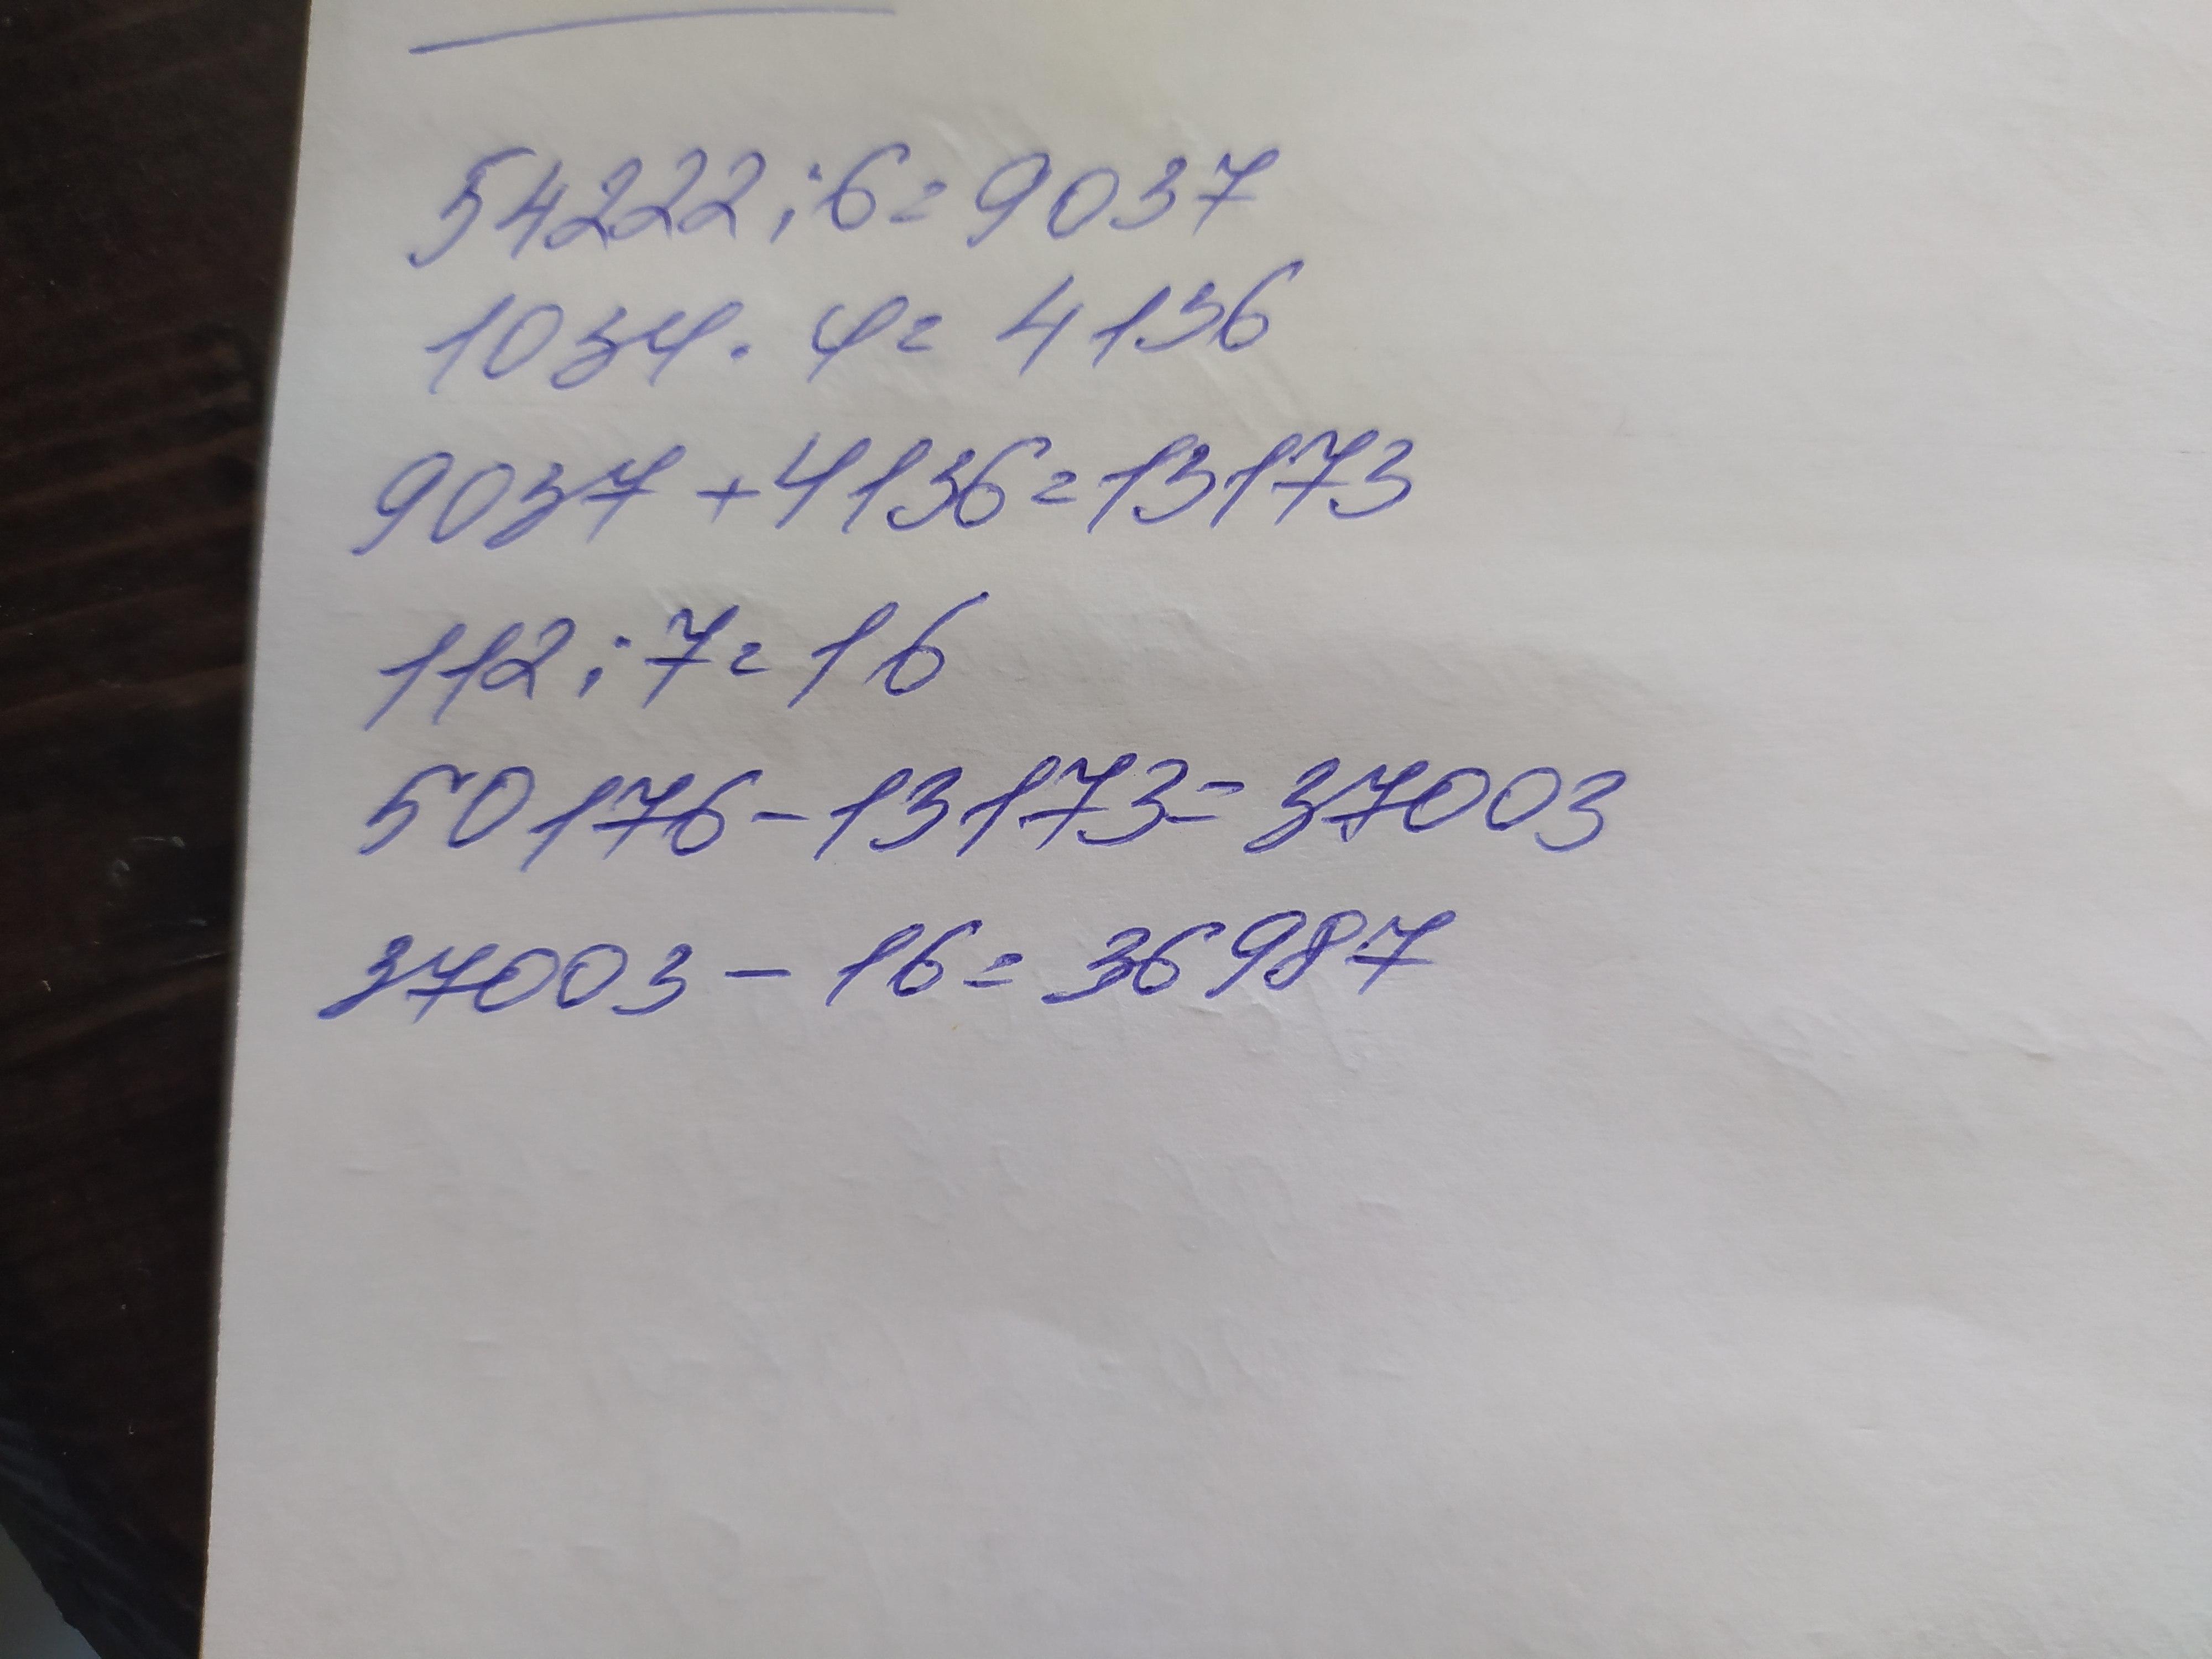 54222:6=9037
1034·4=4136
9037+4136=13173
112:7=16
50176-13173=37003
37003-16=36987